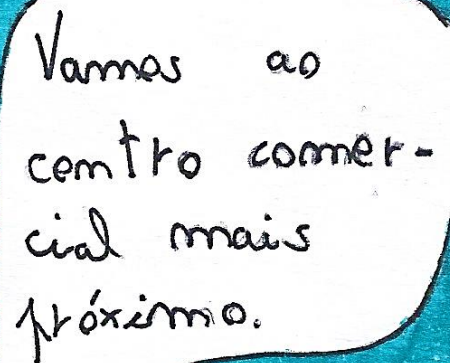 Vamos ao
centro comer-
cial mais
próximo.